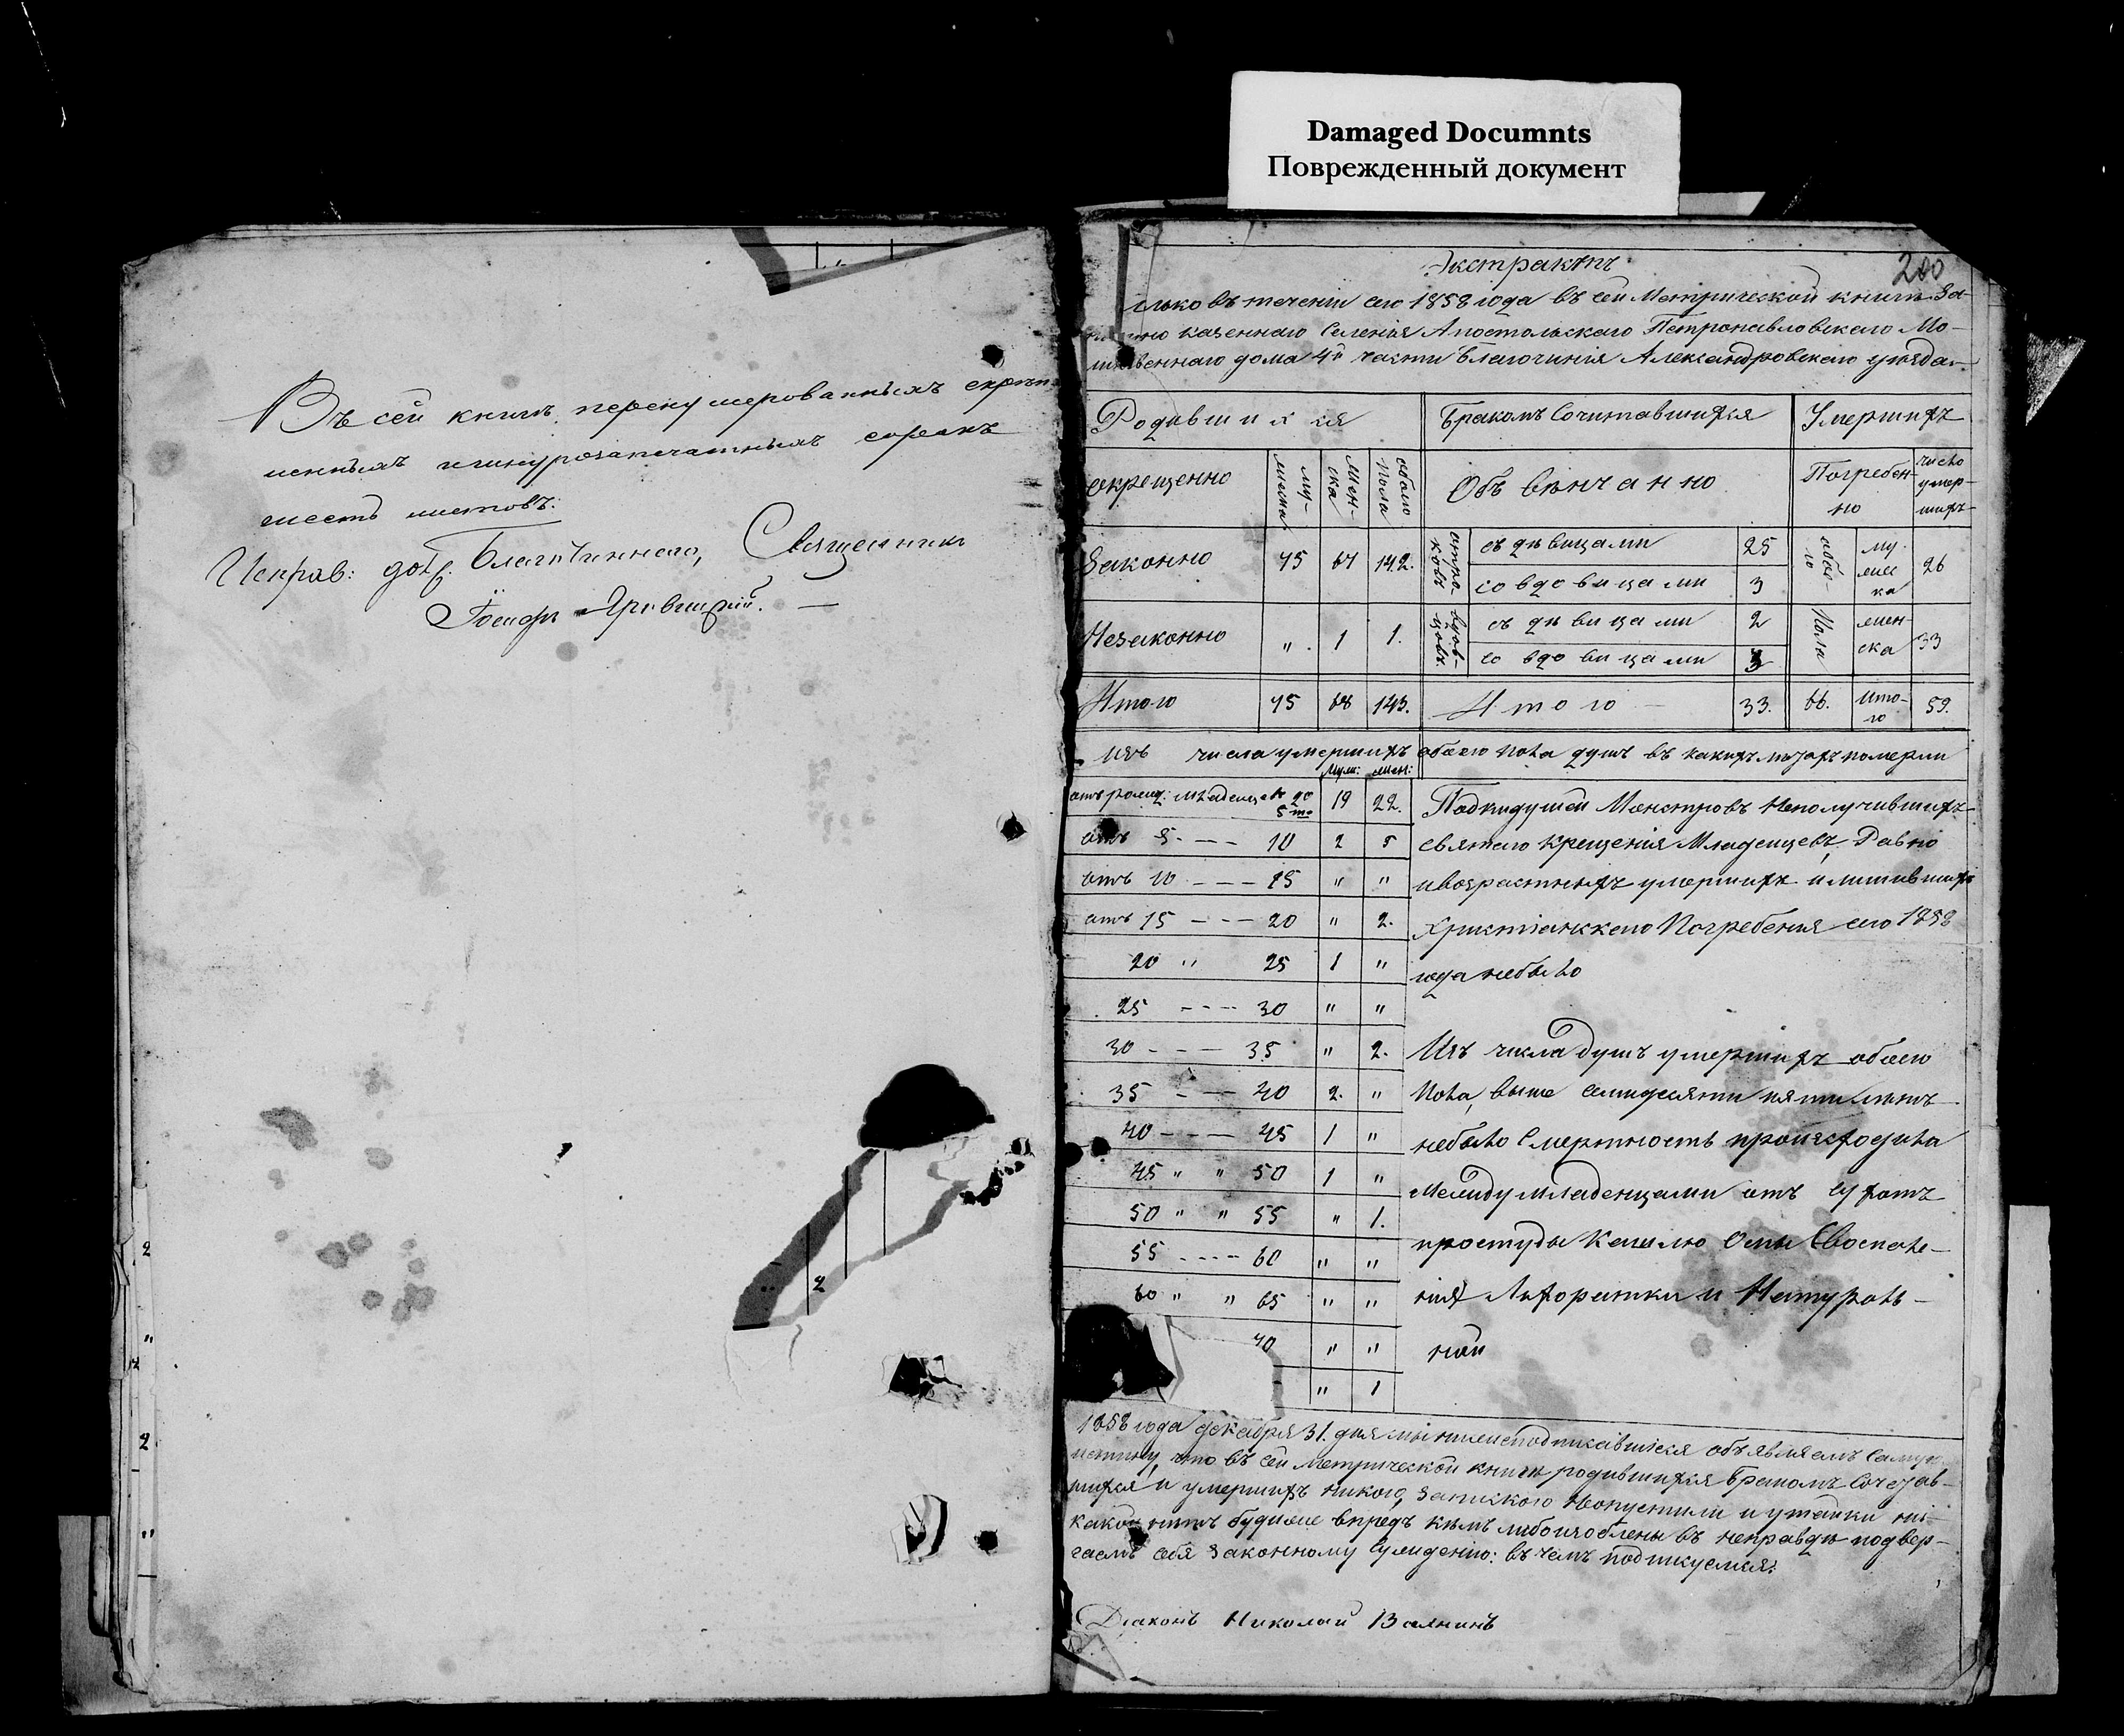 Damaged Documnts
Поврежденный документ
Въ сей книгѣ перенумерованныхъ скрѣп-
ленныхъ ишнурозапечатныхъ сорокъ
шесть листовъ:
Исправ: долж. Благочиннаго, Священникъ
2
2
2
Экстрактъ
200
въ теченіи сего 1858 года въ сей Метрической книгѣ За-
казеннаго Селенія Апостольскаго Петропавловскаго Мо-
литвеннаго дома 4й части Благочинія Александровскаго уѣзда.
Родившихся
Бракомъ Сочитавшихся
Умершихъ
окрещенно
му-
жеска
Жен-
ска
обоего
Пола
Объ вѣнчанно
Погребен-
но
число
умер-
шихъ
Законно
75
67
142.
отро-
ковъ
съ дѣвицами
25
со вдовицами
3
обоя-
го
му-
жес
ка
26
Незаконно
" .
1
1.
вдов-
цовъ
съ дѣвицами
2
со вдовицами
3
Пола
жен-
ска
33
Итого
75
68
143.
Итого
33.
66.
Ито-
го
59.
Изъ числа умершихъ обоего пола душъ въ какихъ лѣтахъ померли
Муж: жен:
отъ рожд: младенцевъ до 5ти 19 22.
отъ 5 - - - 10 2 5
отъ 10 - - - 15 " "
отъ 15 - - - 20 " 2.
20 " 25 1 "
25 - - - - 30 " "
30 - - - 35 " 2.
35 - - - 40 2. "
40 - - - - 45 1 "
45 " " 50 1 "
50 " " 55 " 1.
55 - - - - 60 " "
60 " " 65 " "
70 " "
" 1
Подкидушей Монстровъ Неполучившихъ
святаго крещенія Младенцевъ, Равно
ивозрастныхъ умершихъ и лишившихъ
Христіанскаго Погребенія сего 1858
года небыло
Изъ числа душъ умершихъ обоего
пола, выше семидесяти пяти лѣтъ
небыло Смертность происходила
Между младенцами отъ
простуды Кашлю Оспы Своспале-
нія Лихоратки и Натураль-
ной
1858 года декабря 31. дня мы нижеподписавшіеся объявляемъ самую
истину, что въ сей Метрической книгѣ родившихся бракомъ Сочетав-
шихся и умершихъ никого, запискою неопустили и утайки ни-
какой нѣтъ будиже впредъ кѣмъ либо изоблены въ неправдѣ подвер-
гаемъ себя законному сужденію: въ чемъ подпишуемся:
Діаконъ Николай